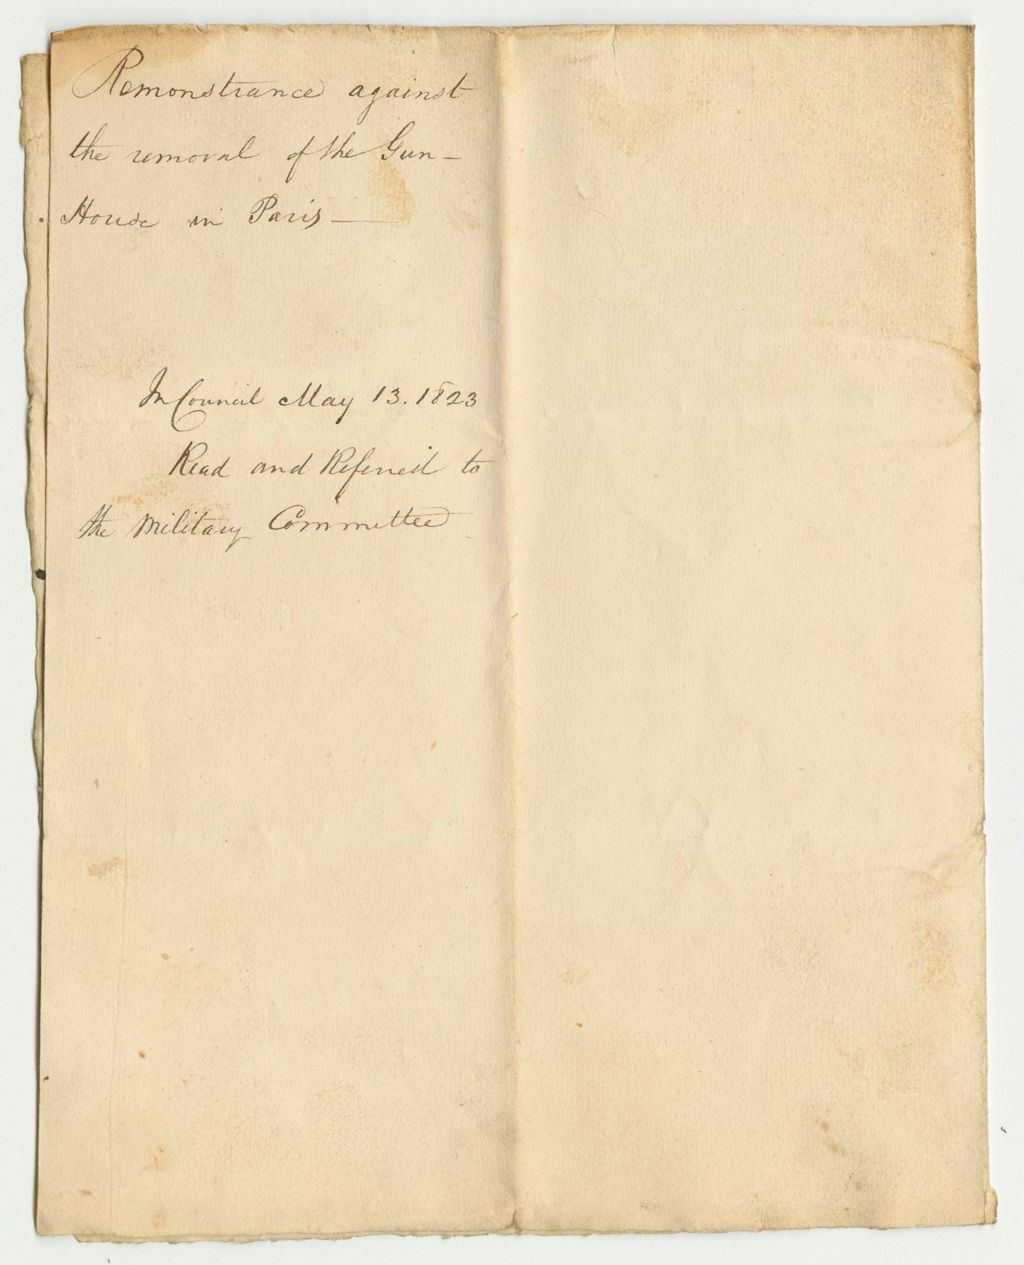 Remonstrance against
the removal of the Gun-
House in Paris—
In Council May 13. 1823
Read and Referred to
the Military Committee